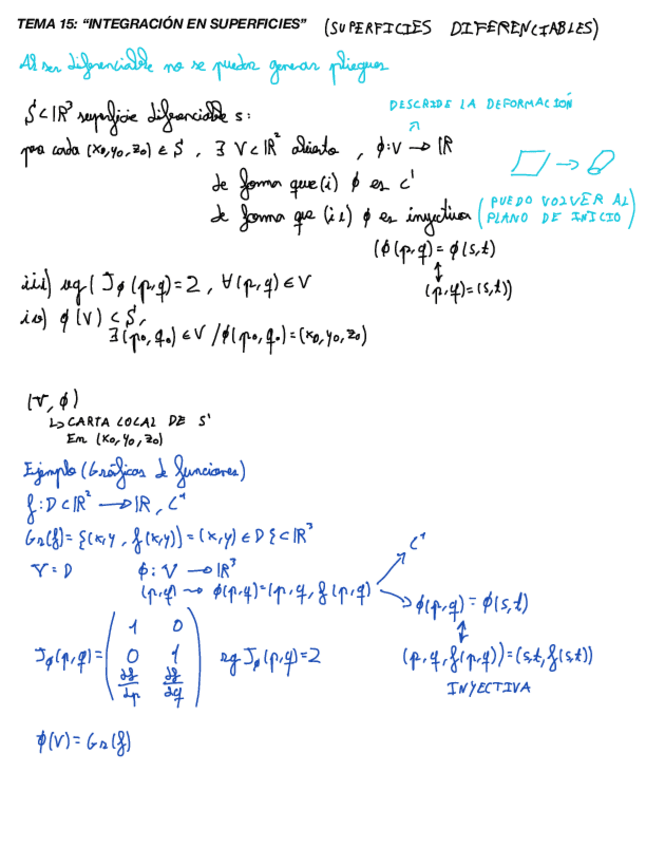 TEMA 15: “INTEGRACIÓN EN SUPERFICIES” (SUPERFICIES DIFERENCIABLES)
Al ser diferenciable no se pueden generar pliegues
DESCRIBE LA DEFORMACIÓN
S⊂ℝ³ superficie diferenciable s:
para cada (x₀,y₀,z₀) ∈ S, ∃ V⊂ℝ² abierto, ϕ: V → ℝ
de forma que (i) ϕ es C¹
de forma que (ii) ϕ es inyectiva (PUEDO VOLVER AL PLANO DE INICIO)
(ϕ(p,q) = ϕ(s,t)
↕
(p,q)=(s,t))
iii) rg(Jϕ(p,q)=2, ∀(p,q) ∈ V
iv) ϕ(V) ⊂ S,
∃(p₀,q₀) ∈ V / ϕ(p₀,q₀)=(x₀,y₀,z₀)
(V, ϕ)
↳ CARTA LOCAL DE S
En (x₀,y₀,z₀)
Ejemplo (Gráficas de funciones)
f: D⊂ℝ² → ℝ, C¹
Gr(f)= {(x,y, f(x,y)) = (x,y) ∈ D{ ⊂ ℝ³
V=D ϕ: V → ℝ³
(p,q) → ϕ(p,q)=(p,q, f(p,q)
C¹
ϕ(p,q) = ϕ(s,t)
↕
(p,q,f(p,q))=(s,t,f(s,t))
INYECTIVA
Jϕ(p,q)= ( 1 0
0 1
∂f/∂p ∂f/∂q ) rg Jϕ(p,q)=2
ϕ(V)=Gr(f)